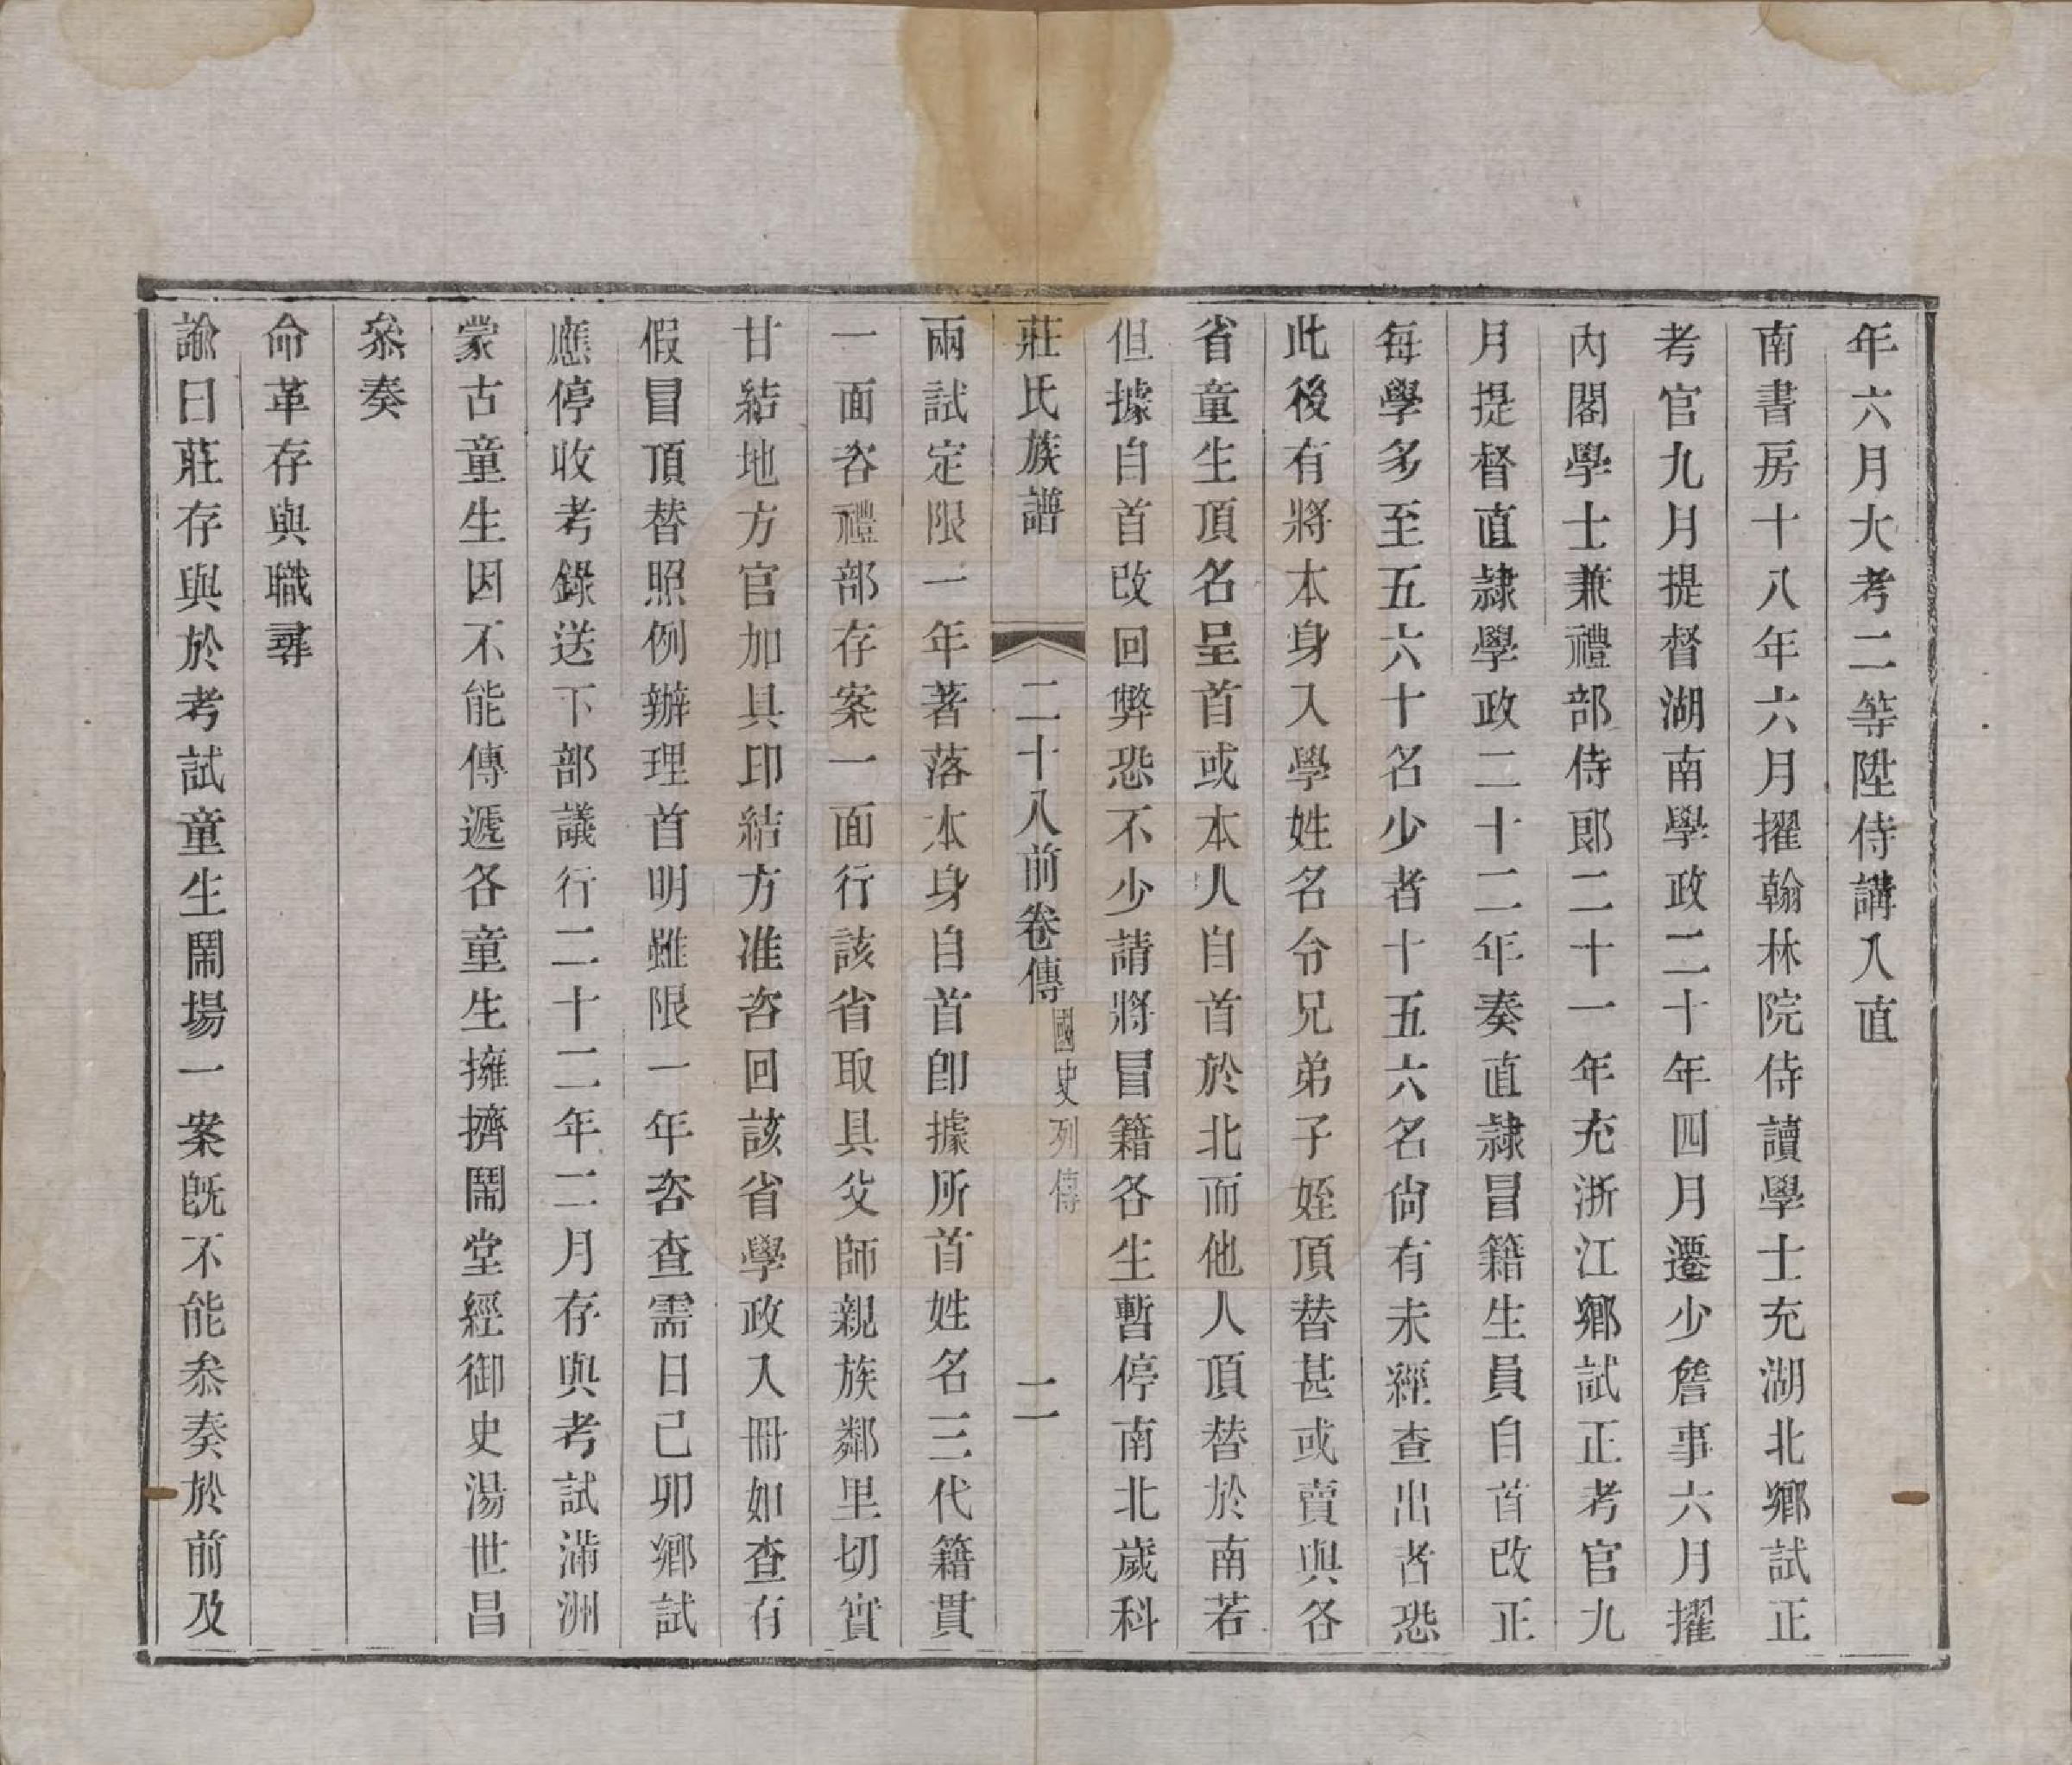 年六月大考二等陞侍講入直
南書房十八年六月擢翰林院侍讀學士充湖北鄉試正
考官九月提督湖南學政二十年四月遷少詹事六月擢
內閣學士兼禮部侍郎二十一年充浙江鄉試正考官九
月提督直隸學政二十二年奏直隸冒籍生員自首改正
每學多至五六十名少者十五六名尙有未經查出者恐
此後有將本身入學姓名分兄弟子姪頂替甚或賣與各
省童生頂名呈首或本人自首於北而他人頂替於南若
但據自首改回弊恐不少請將冒籍各生暫停南北歲科
莊氏族譜 二十八前卷傳 國史列傳 二
兩試定限一年著落本身自首卽據所首姓名三代籍貫
一面咨禮部存案一面行該省取具父師親族鄰里切實
甘結地方官加具印結方准咨回該省學政入冊如查有
假冒頂替照例辦理首明雖限一年咨查需日己卯鄉試
應停收考錄送下部議行二十二年二月存與考試滿洲
蒙古童生因不能傳遞各童生擁擠鬧堂經御史湯世昌
叅奏
命革存與職尋
諭曰莊存與於考試童生鬧場一案旣不能叅奏於前及